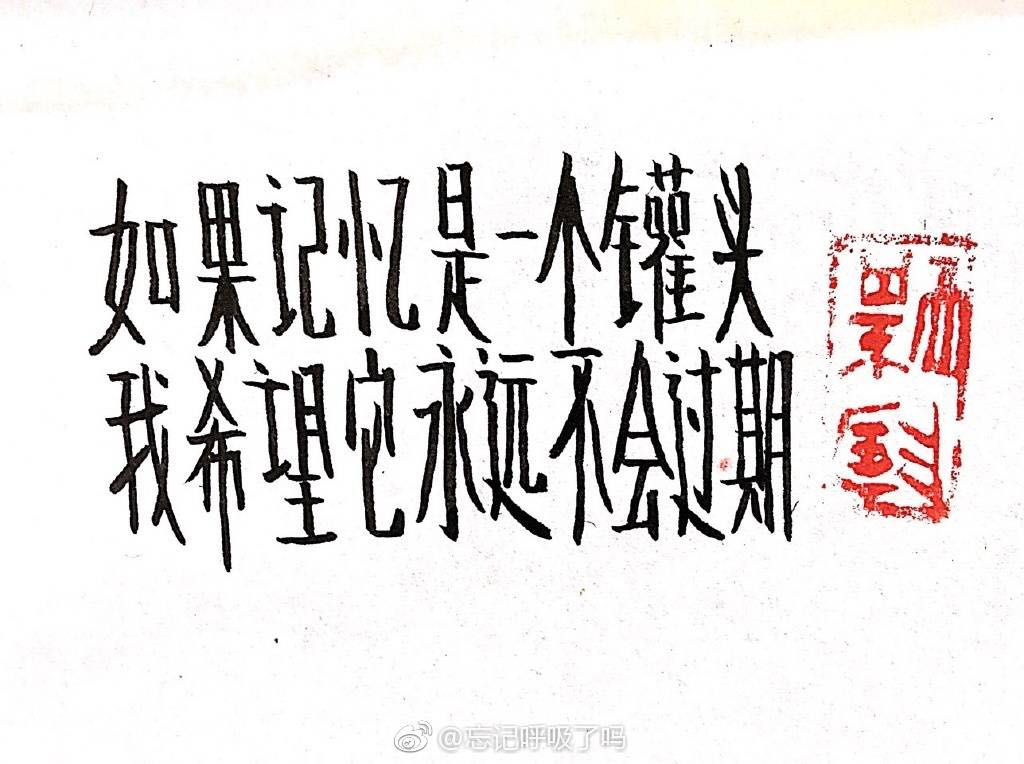 如果记忆是一个罐头
我希望它永远不会过期
@忘记呼吸了吗